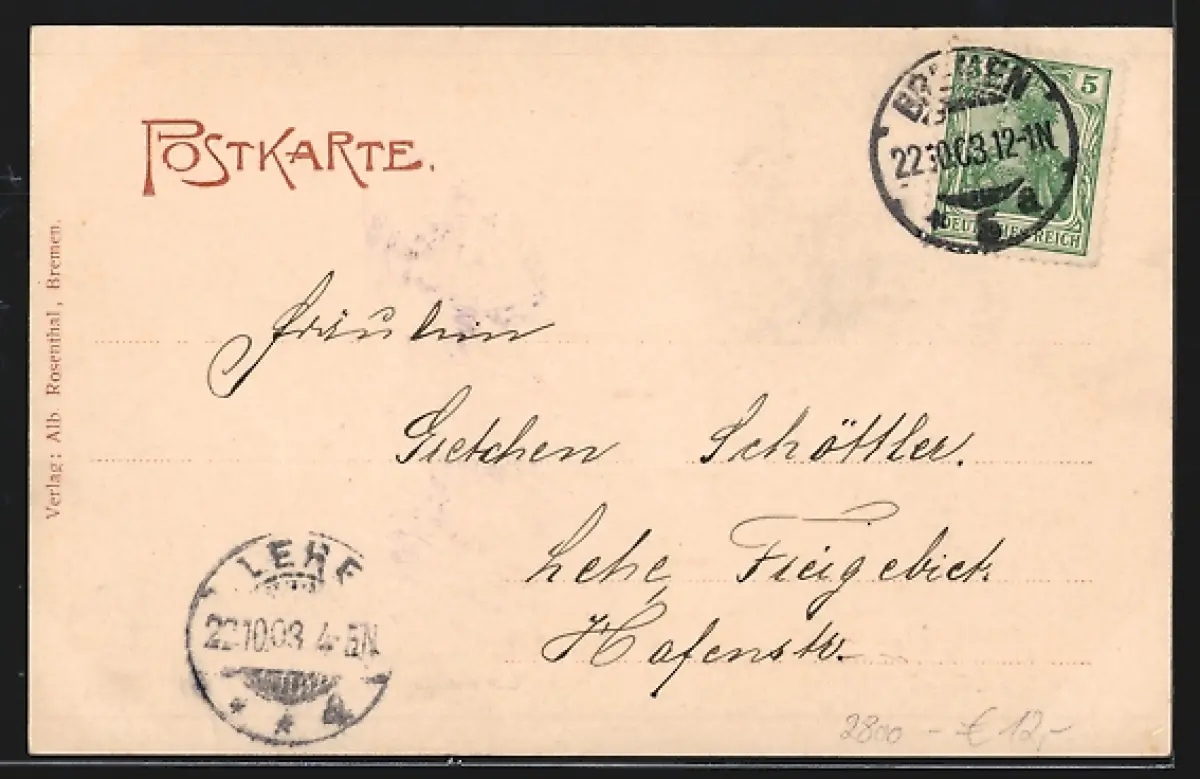 POSTKARTE.
BREMEN
22.10.03.12-1N
* 5 a
5
DEUTSCHES REICH
Verlag: Alb. Rosenthal, Bremen.
Fräulein
Gretchen Schöttler.
Lehe Freigebiet
Hafenstr.
LEHE
22.10.03 4-5N
* * a
2800 - € 12,-